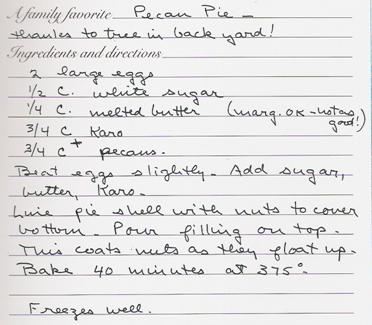 A family favorite Pecan Pie –
thanks to tree in back yard!
Ingredients and directions
2 large eggs
1/2 C. white sugar
1/4 C. melted butter (marg. OK – not as good!)
3/4 C Karo
3/4 C+ pecans.
Beat eggs slightly. Add sugar,
butter, Karo.
Line pie shell with nuts to cover
bottom. Pour filling on top.
This coats nuts as they float up.
Bake 40 minutes at 375°.
Freezes well.